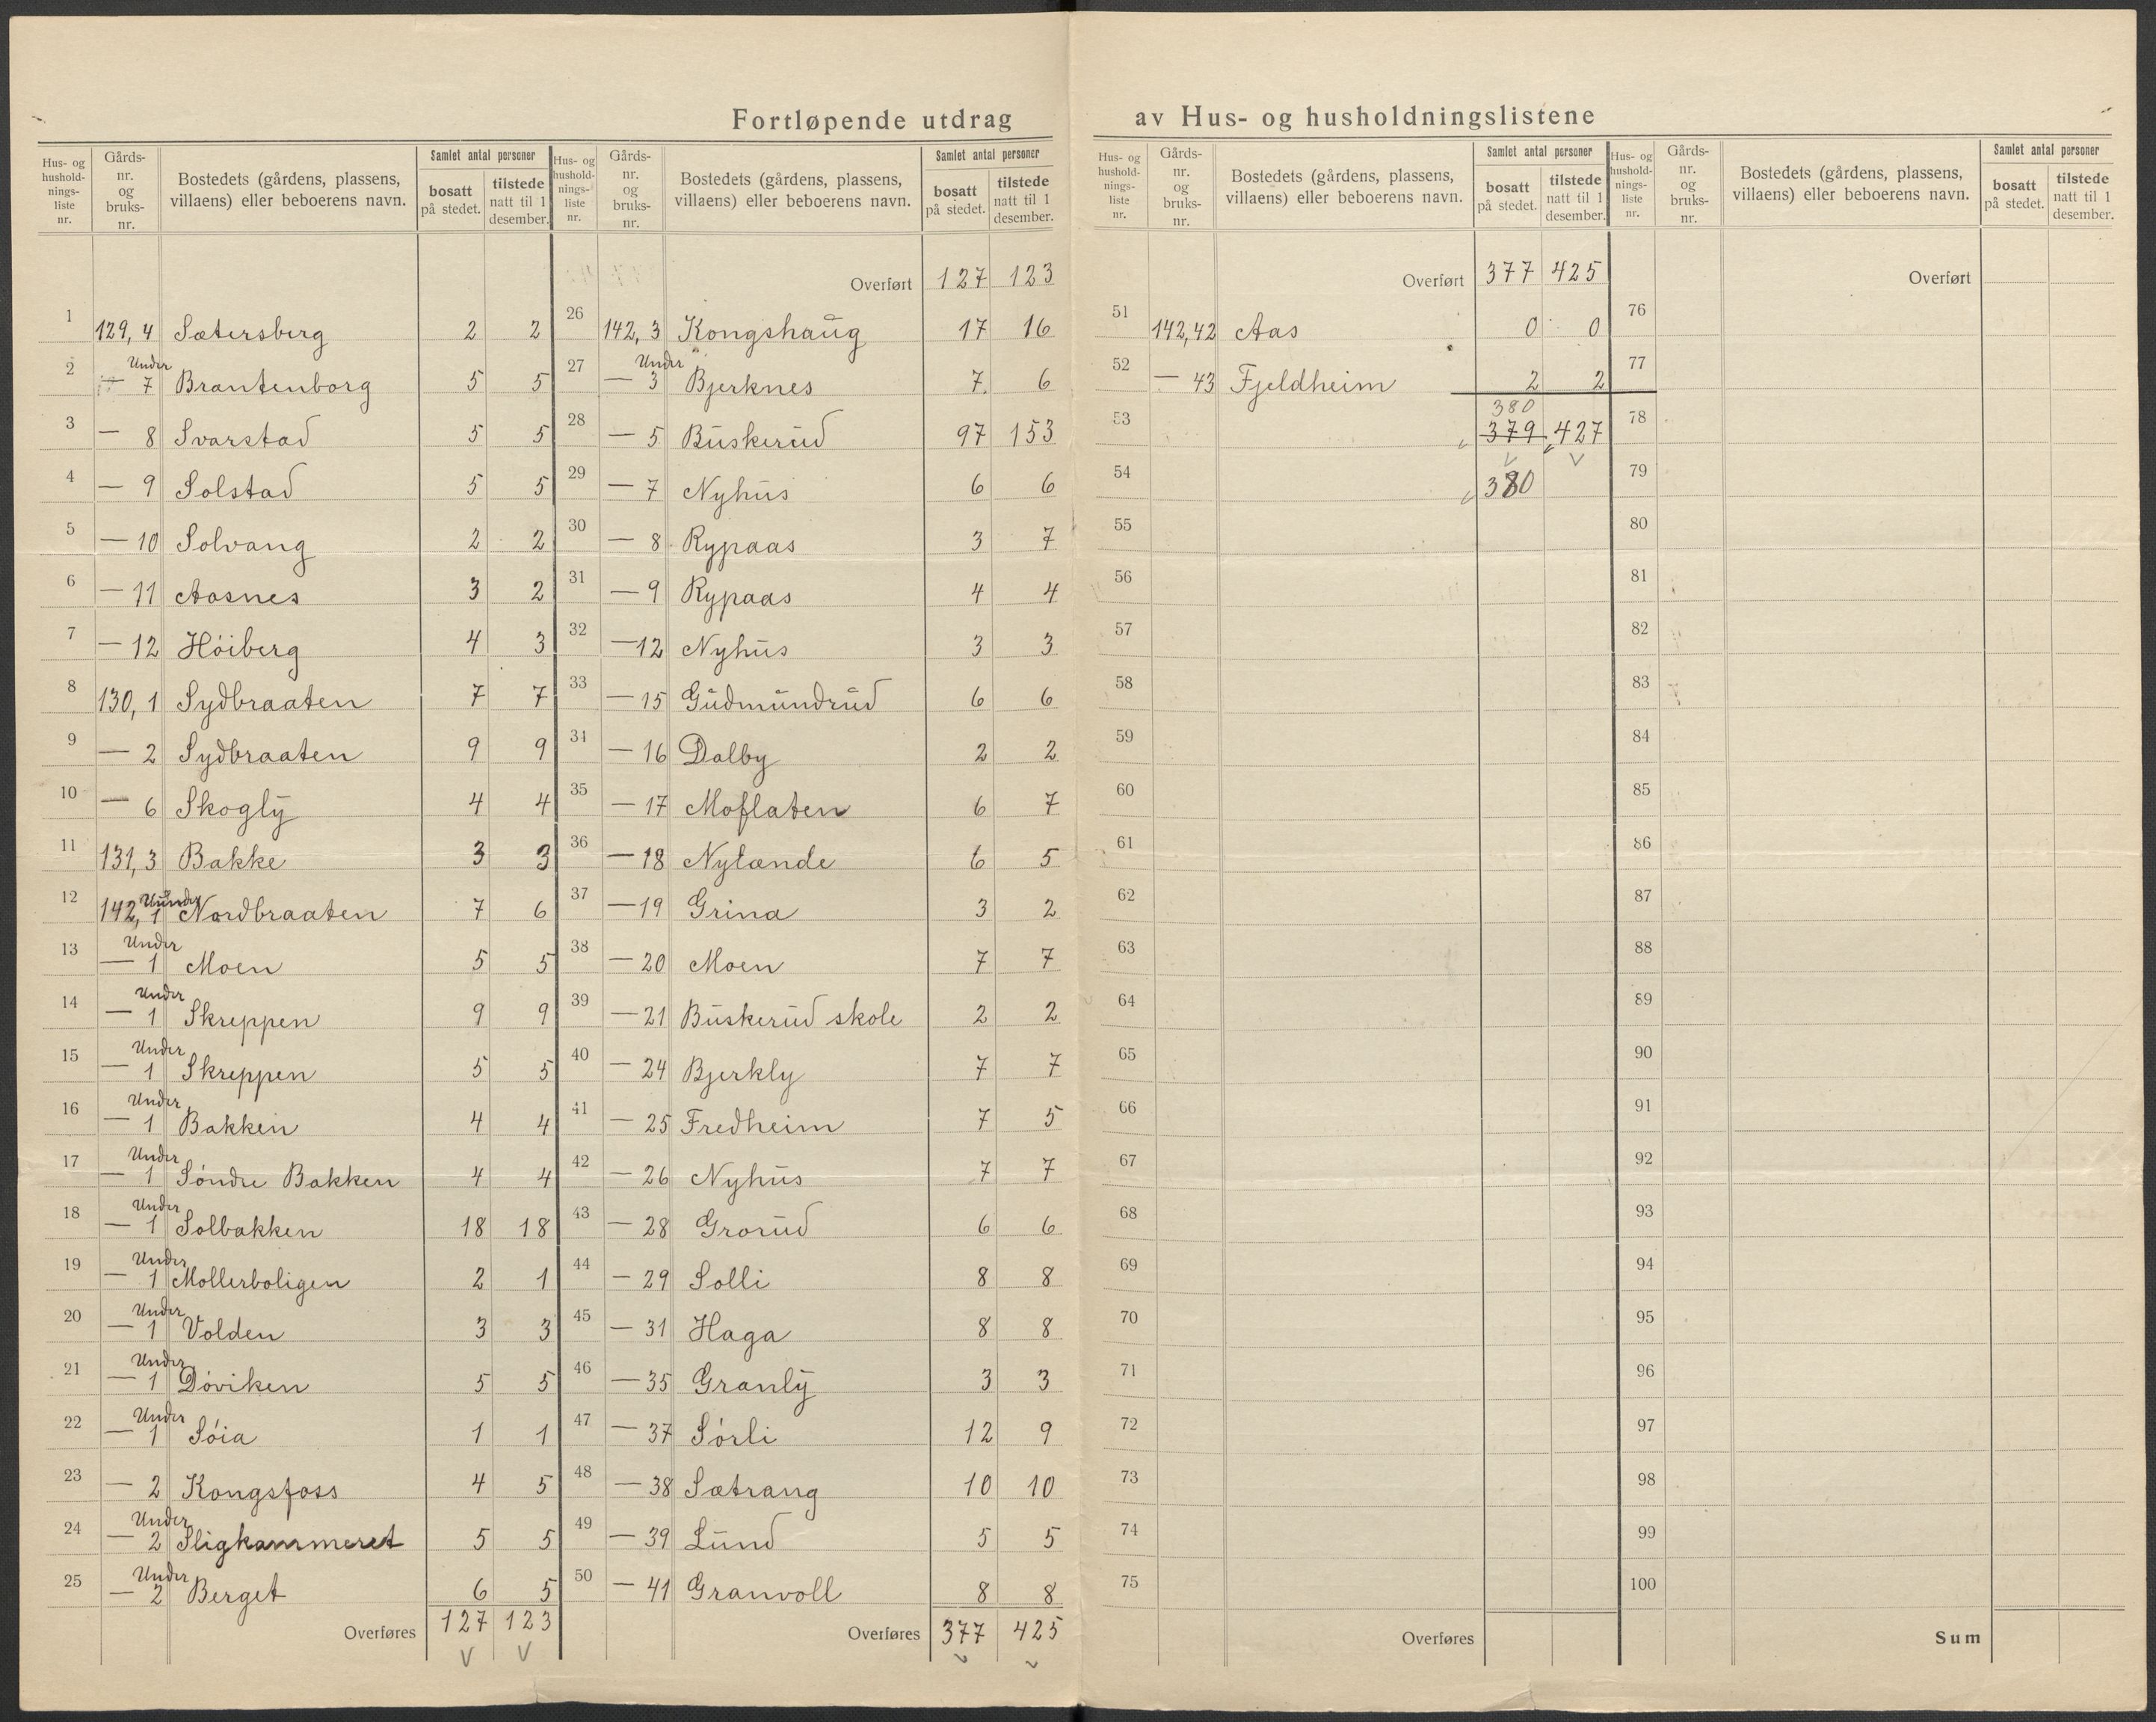 Fortløpende utdrag av Hus- og husholdningslistene
Hus- og husholdningsliste nr. | Gårdsnr. og bruksnr. | Bostedets (gårdens, plassens, villaens) eller beboerens navn. | Samlet antal personer | bosatt på stedet. | tilstede natt til 1 desember.
1 129,4 Sætersberg 2 2
2 Under — 7 Brantenborg 5 5
3 — 8 Svarstad 5 5
4 — 9 Solstad 5 5
5 — 10 Solvang 2 2
6 — 11 Aasnes 3 2
7 — 12 Høiberg 4 3
8 130,1 Sydbraaten 7 7
9 — 2 Sydbraaten 9 9
10 — 6 Skogly 4 4
11 131,3 Bakke 3 3
12 142,1 Under Nordbraaten 7 6
13 Under — 1 Moen 5 5
14 Under — 1 Skreppen 9 9
15 Under — 1 Skreppen 5 5
16 Under — 1 Bakken 4 4
17 Under — 1 Søndre Bakken 4 4
18 Under — 1 Solbakken 18 18
19 Under — 1 Mollerboligen 2 1
20 Under — 1 Volden 3 3
21 Under — 1 Døviken 5 5
22 Under — 1 Søia 1 1
23 — 2 Kongsfoss 4 5
24 Under — 2 Sligkammeret 5 5
25 Under — 2 Berget 6 5
Overføres 127 123
Hus- og husholdningsliste nr. | Gårdsnr. og bruksnr. | Bostedets (gårdens, plassens, villaens) eller beboerens navn. | Samlet antal personer | bosatt på stedet. | tilstede natt til 1 desember.
Overført 127 123
26 142,3 Kongshaug 17 16
27 Under — 3 Bjerknes 7 6
28 — 5 Buskerud 97 153
29 — 7 Nyhus 6 6
30 — 8 Rypaas 3 7
31 — 9 Rypaas 4 4
32 — 12 Nyhus 3 3
33 — 15 Gudmundrud 6 6
34 — 16 Dalby 2 2
35 — 17 Moflaten 6 7
36 — 18 Nylænde 6 5
37 — 19 Grina 3 2
38 — 20 Moen 7 7
39 — 21 Buskerud skole 2 2
40 — 24 Bjerkly 7 7
41 — 25 Fredheim 7 5
42 — 26 Nyhus 7 7
43 — 28 Grorud 6 6
44 — 29 Solli 8 8
45 — 31 Haga 8 8
46 — 35 Granly 3 3
47 — 37 Sørli 12 9
48 — 38 Sætrang 10 10
49 — 39 Lund 5 5
50 — 41 Granvoll 8 8
Overføres 377 425
Hus- og husholdningsliste nr. | Gårdsnr. og bruksnr. | Bostedets (gårdens, plassens, villaens) eller beboerens navn. | Samlet antal personer | bosatt på stedet. | tilstede natt til 1 desember.
Overført 377 425
51 142,42 Aas 0 0
52 — 43 Fjeldheim 2 2
380
53 379 427
54 380
55
56
57
58
59
60
61
62
63
64
65
66
67
68
69
70
71
72
73
74
75
Overføres
Hus- og husholdningsliste nr. | Gårdsnr. og bruksnr. | Bostedets (gårdens, plassens, villaens) eller beboerens navn. | Samlet antal personer | bosatt på stedet. | tilstede natt til 1 desember.
Overført
76
77
78
79
80
81
82
83
84
85
86
87
88
89
90
91
92
93
94
95
96
97
98
99
100
Sum